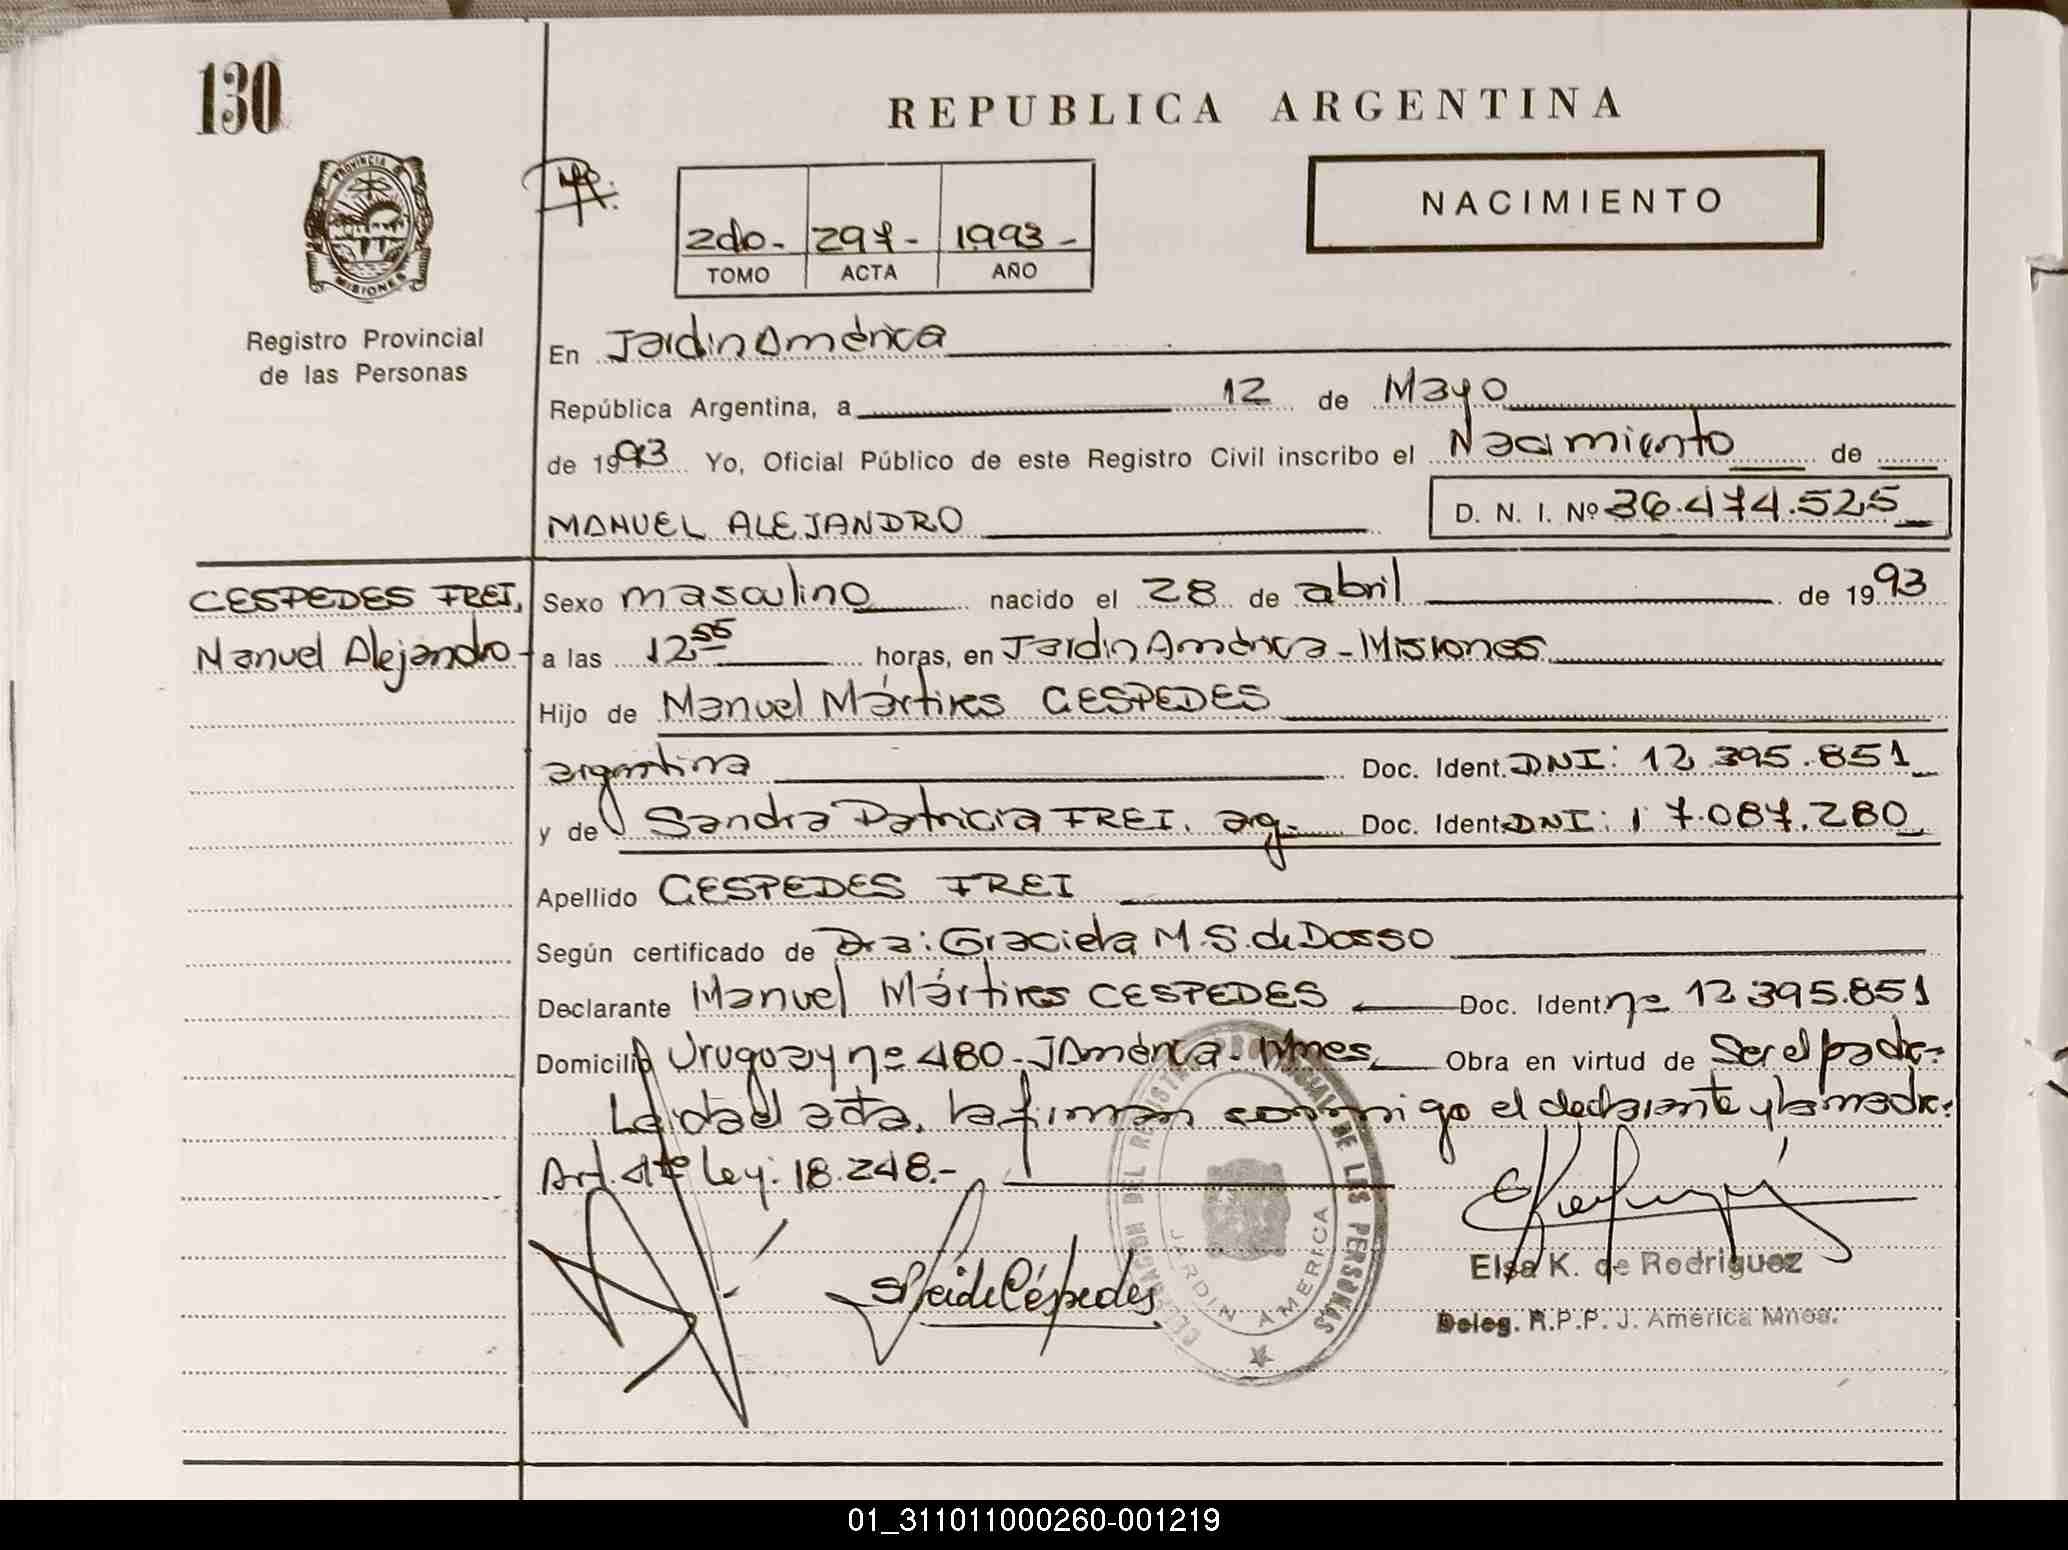 130
REPUBLICA ARGENTINA
PROVINCIA
MISIONES
NACIMIENTO
2do.- 297- 1993-
TOMO ACTA AÑO
Registro Provincial
de las Personas
En Jardin América
República Argentina, a 12 de Mayo
de 1993 Yo, Oficial Público de este Registro Civil inscribo el Nacimiento de
MANUEL ALEJANDRO D. N. I. Nº 36.474.525
CESPEDES FREI,
Manuel Alejandro-
Sexo masculino nacido el 28 de abril de 1993
a las 12 55 horas, en Jardin América - Misiones
Hijo de Manuel Mártires CESPEDES
argentina Doc. Ident. DNI: 12 395.851
y de Sandra Patricia FREI. arg. Doc. Ident. DNI: 17.087.280
Apellido CESPEDES FREI
Según certificado de Dra: Graciela M. S. de Dosso
Declarante Manuel Mártires CESPEDES Doc. Ident. nº 12 395.851
Domicilio Uruguay nº 480- J América- Mnes. Obra en virtud de Ser el padre-
Leida el acta, la firman conmigo el declarante y la madre.
Art. 4to Ley: 18.248.-
DELEGACION DEL REGISTRO PROVINCIAL DE LAS PERSONAS
JARDIN AMERICA
de Céspedes
Elsa K. de Rodriguez
Deleg. R.P.P. J. América Mnes.
01_311011000260-001219